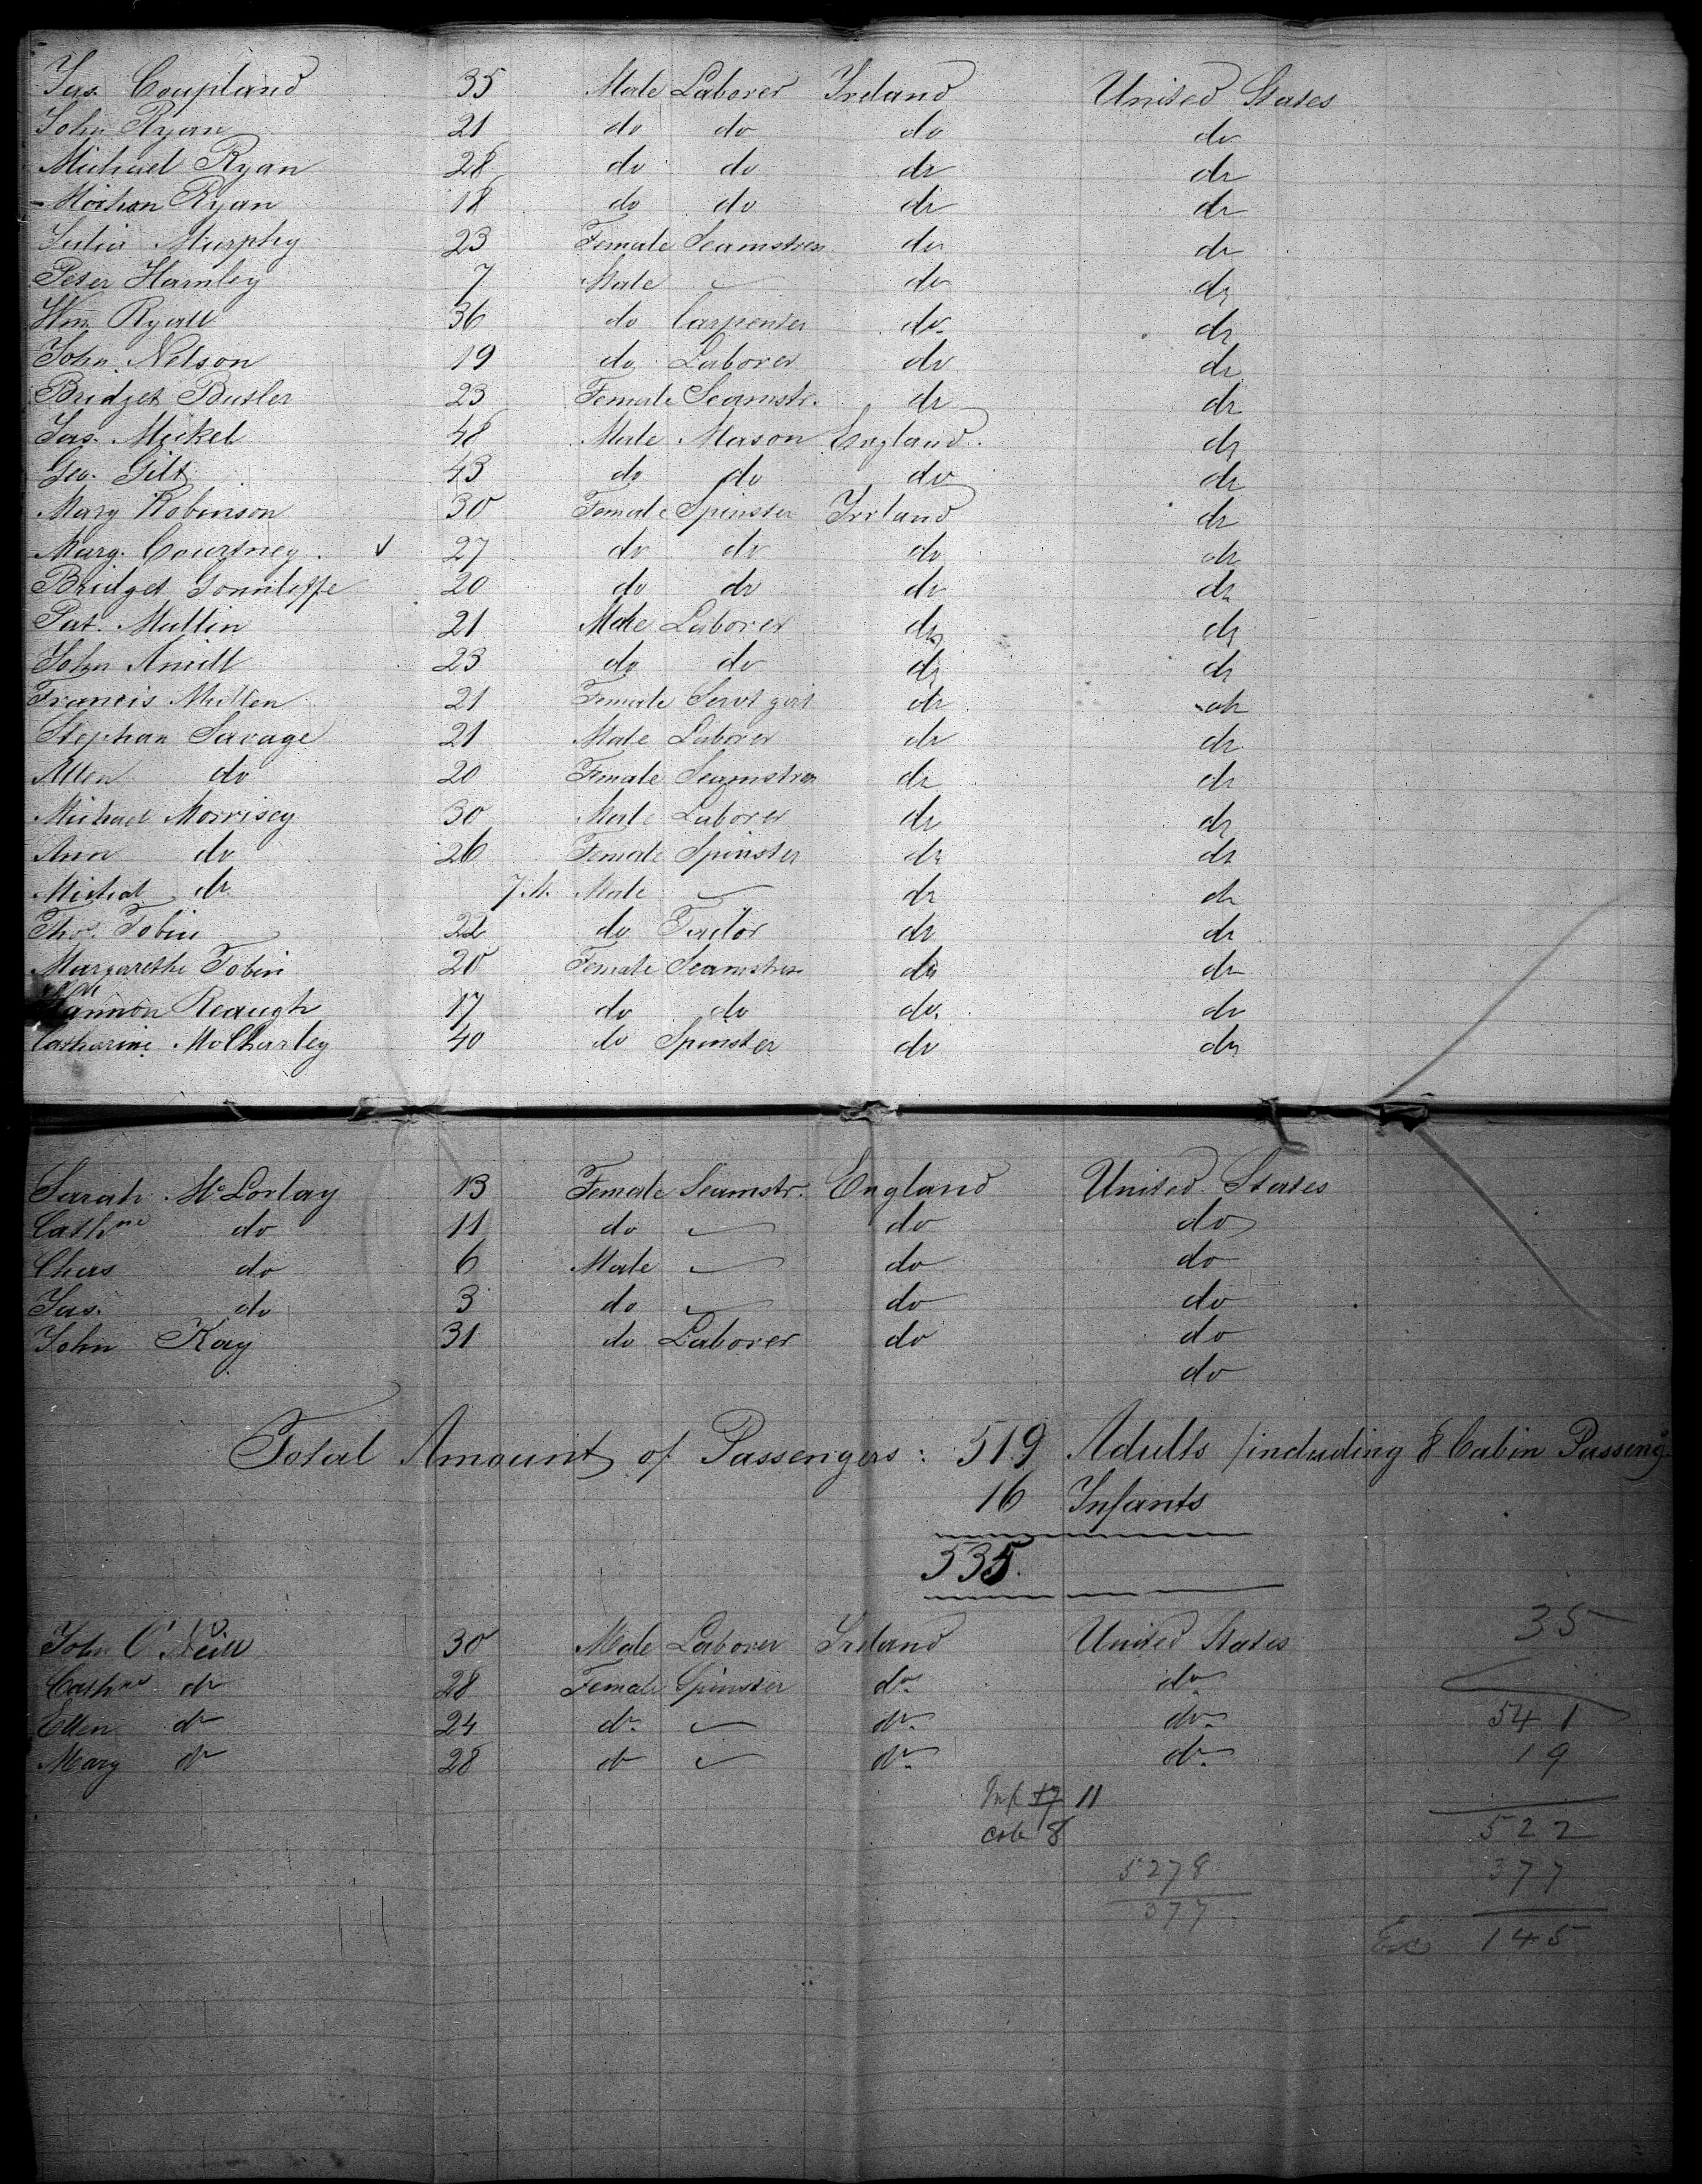 Jas. Coupland 35 Male Laborer Ireland United States
John Ryan 21 do do do do
Michael Ryan 28 do do do do
Ryan 18 do do do do
Julia Murphy 23 Female Seamstress do do
Peter Hamley 7 Male do do
Wm Ryall 36 do Carpenter do do
John Nelson 19 do Laborer do do
Bridget Butler 23 Female Seamstr. do do
Jas. Mickel 48 Male Mason England do
Geo. Gilt 43 do do do do
Mary Robinson 30 Female Spinster Ireland do
Marg. Courtney 27 do do do do
Bridget 20 do do do do
Pat. Mullin 21 Male Laborer do do
John 23 do do do do
Francis Mullen 21 Female Servt girl do do
Stephan Savage 21 Male Laborer do do
Allen do 20 Female Seamstress do do
Michael Morrisey 30 Male Laborer do do
Ann do 26 Female Spinster do do
Michal do 7.M. Male do do
Thos. Tobin 22 do Tailor do do
Margarethe Tobin 20 Female Seamstress do do
Reaugh 17 do do do do
Catharine McCharley 40 do Spinster do do
Sarah McLorlay 13 Female Seamstr. England United States
Cathne do 11 do do do
Chas do 6 Male do do
Jas. do 3 do do do
John Kay 31 do Laborer do do
do
Total Amount of Passengers: 519 Adults /including 8 Cabin Passeng.
16 Infants
535.
John O'Neill 30 Male Laborer Ireland United States
Cathne do 28 Female Spinster do do
Ellen do 24 do do do
Mary do 28 do do do
35
541
19
Inf 17 11
cab 8
522
5278
377
377
Exc 145